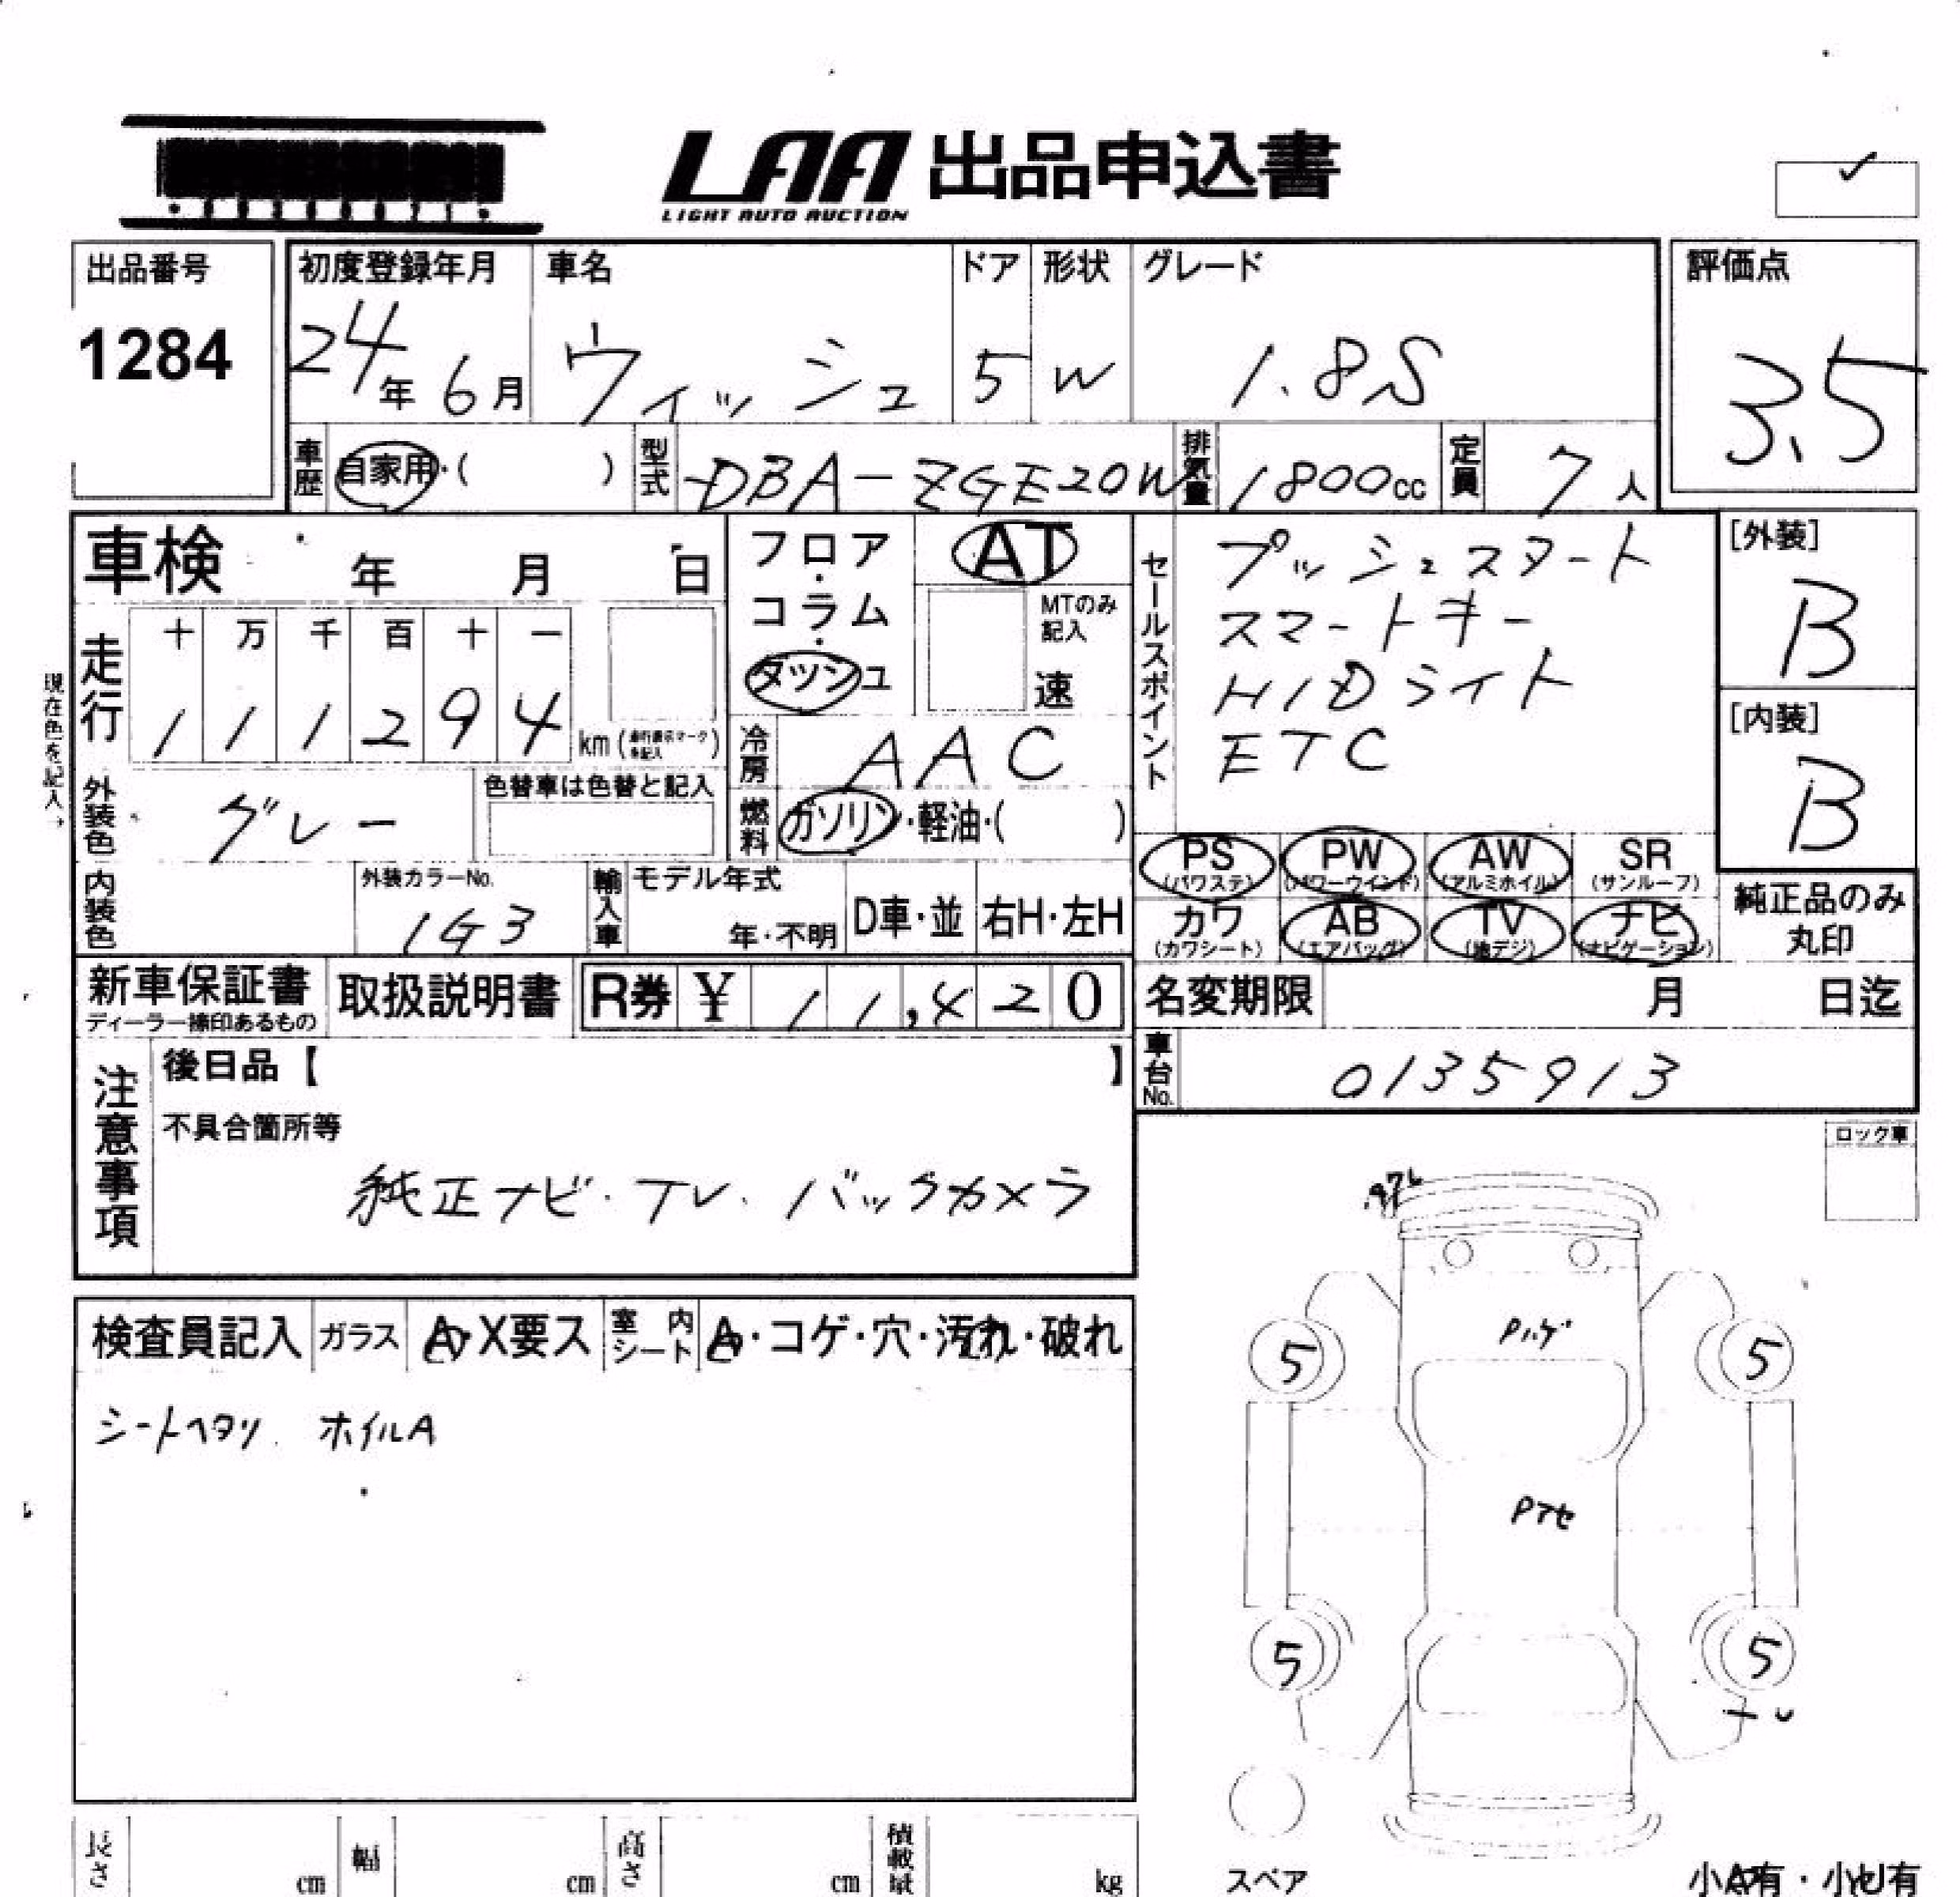 LAA 出品申込書
LIGHT AUTO AUCTION
出品番号 初度登録年月 車名 ドア 形状 グレード 評価点
1284 24年 6月 ウィッシュ 5 W 1.8S 3.5
車歴 自家用・( ) 型式 DBA-ZGE20W 排気量 1800cc 定員 7人
車検 年 月 日
フロア・コラム・ダッシュ
AT
MTのみ記入
速
セールスポイント
プッシュスタート
スマートキー
HIDライト
ETC
[外装]
B
[内装]
B
現在色を記入→
走行 十 万 千 百 十 一
1 1 1 2 9 4 km (走行表示マークを記入)
冷房 AAC
外装色 グレー 色替車は色替と記入
燃料 ガソリン・軽油・( )
PS (パワステ) PW (パワーウインド) AW (アルミホイル) SR (サンルーフ)
カワ (カワシート) AB (エアバッグ) TV (地デジ) ナビ (ナビゲーション)
純正品のみ
丸印
内装色 外装カラーNo. 1G3 輸入車 モデル年式 年・不明 D車・並 右H・左H
新車保証書 取扱説明書 R券 ¥ 11,420
ディーラー捺印あるもの
名変期限 月 日迄
車台No. 0135913
注意事項
後日品【 】
不具合箇所等
純正ナビ・TV・バックカメラ
ロック車
検査員記入 ガラス A・X要ス 室内シート A・コゲ・穴・汚れ・破れ
シートヘタリ ホイルA
Pハゲ
5 5
Pアセ
5 5
長さ cm 幅 cm 高さ cm 積載量 kg
スペア
小A有・小U有